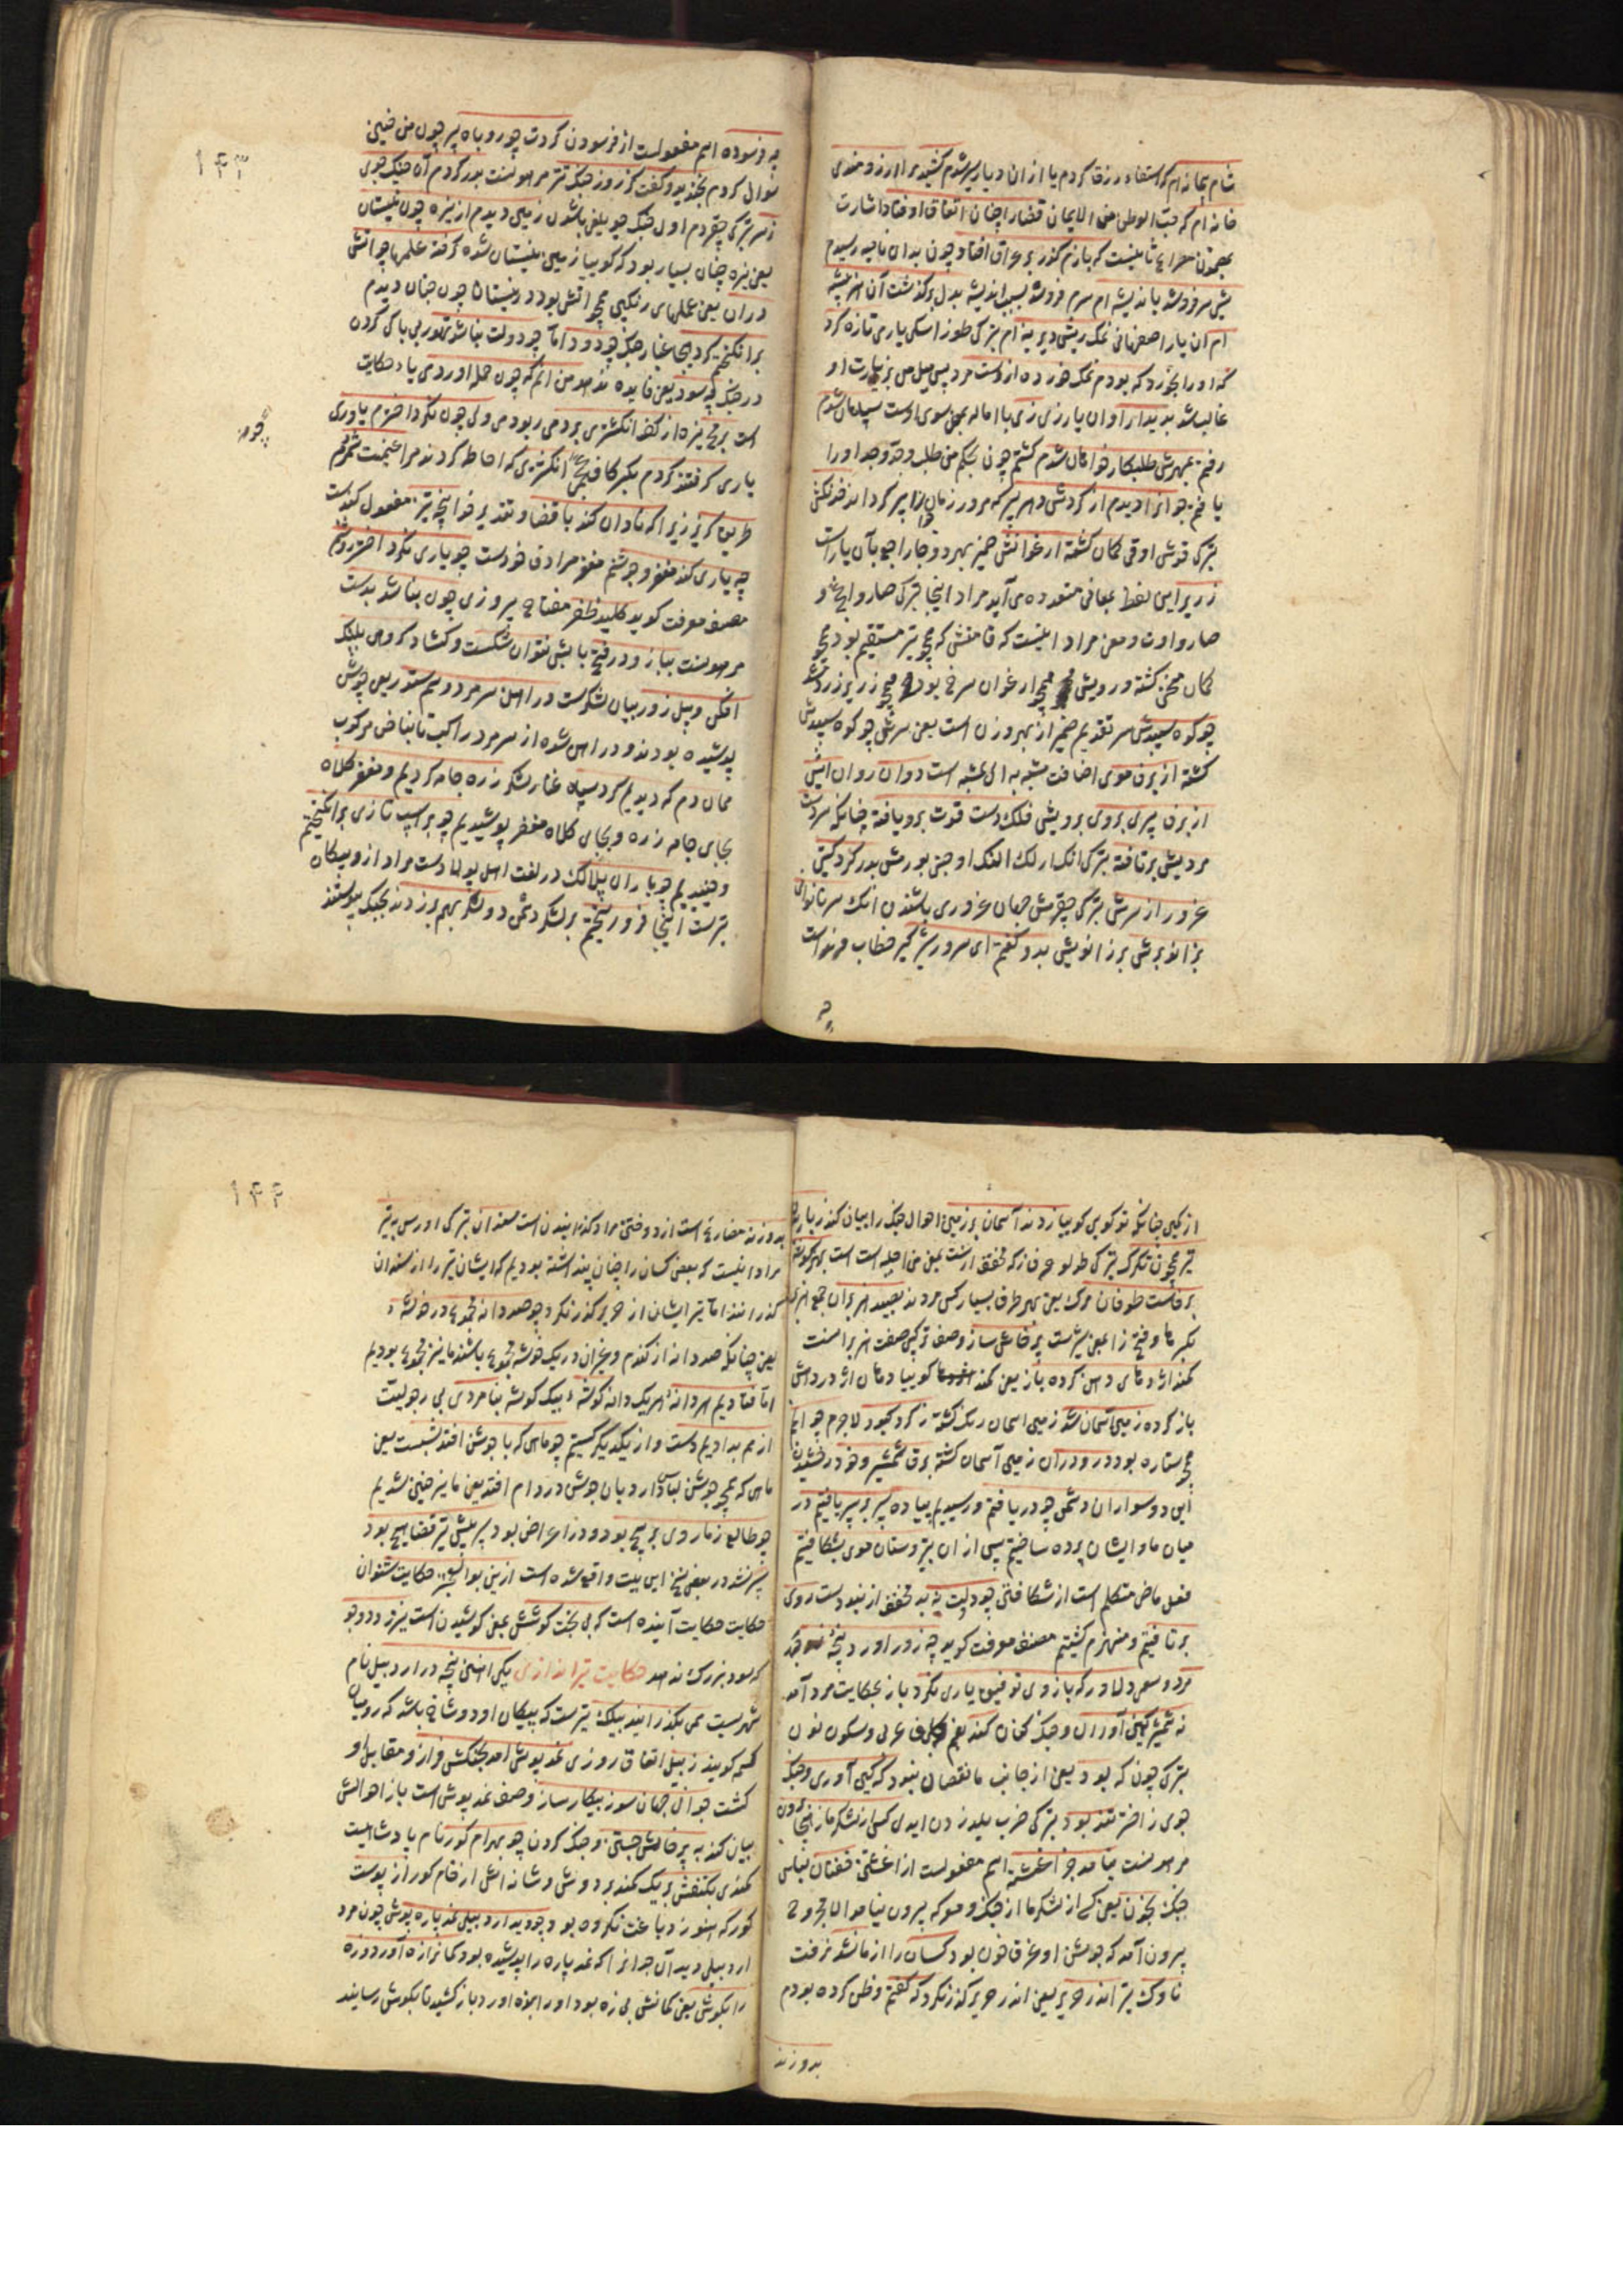 شام پیمانه ام که استقاء رزق کردم یا از ان دیار سیر شدم کشید مرا ارزومندی
خانه ام که حب الوطن من الایمان قضارا چنان اتفاق اوفتاد اشارت
مصراع ثانیست که بازم کذر بر عراق افتاد چون بدان ناحیه رسیدم
شبی سر فروشد باندیشه ام سرم فروشد بسبب اندیشه بدل برکذشت آن هنر پیشه
ام ان یار اصفهانی نمک ریش دیرینه ام بترکی طوز اسکی یاری تازه کرد
که او را بخورد که بودم نمک خورده از دست مرد پس میل من بزیارت او
غالب شد بدیدار او ان یار زی زی با اماله بمعنی سوی اوست سپاهان شدم
رفتم بمهرش طلبکار خواهان شدم کشتم چون بحکم من طلب وجد وجد او را
یافتم جوانرا دیدم از کردش دهر پیر که مرور زمان او را پیر کرداند خدنکش
بترکی قوش اوقی کمان کشته ارغوانش ضمیر بهر دو جا راجع بآن یار است
زریر این لفظ بمعانی متعدده می آید مراد اینجا بترکی صارو ایچ و
صارو اوت و معنی مراد اینست که قامتش که همچو تیر مستقیم بود همچو
کمان منحنی کشته و رویش همچو ارغوان سرخ بود همچو زریر زرد شد
چو کوه سپیدش سر تقدیم ضمیر از بهر وزن است یعنی سرش چو کوه سپیدش
کشته از برف موی اضافت مشبه به الی مشبه است دوان روان ابش
از برف پیری بروی برویش فلک دست قوت برو یافته چنانکه سر دست
مردیش برتافته بترکی انک ارلک النک اوجنی بورمش بدر کرد کیتی
غرور از سرش بترکی چقرمش جهان غروری باشندن انک سر ناتوانی
بزانو برش بر زانویش بدو کفتم ای سرور شیر کیر خطاب مرد است
چه
۱۴۳
چه فرسوده اسم مفعولست از فرسودن کردت چو روباه پیر چون من چنین
سؤال کردم بخندید و کفت کز روز جنک تتر مرهونست بدر کردم آن جنک جوی
زسر بترکی چقردم اول جنک جویلغی باشدن زمین دیدم از نیزه چون نیستان
یعنی نیزه چنان بسیار بود که کوییا زمین نیستان شده کرفته علمها چو اتش
دران یعنی علمهای رنکین همچو اتش بود در نیستان چون چنان دیدم
برانکیختم کرد هیجا غبار جنک چو دود اما چو دولت نباشد تهور بی باکی کردن
در جنک چه سود یعنی فایده ندهد من انم که چون حمله اوردمی یاء حکایت
است برمح نیزه از کف انکشتری بردمی ربودمی ولی چون نکرد اخترم یاوری
یاری کرفتند کردم بکسر کاف بمعنی انکشتری که احاطه کردند مرا غنیمت شمردم
طریق کریز زیرا که نادان کند با قضا و تقدیر خدا پنجه تیز مفعول کندست
چه یاری کند مغفر و جوشنم مغفر مراد ف خودست چو یاری نکرد اختر روشنم
مصنف معرفت کوید کلید ظفر مفتاح پیروزی چون نباشد بدست
مرهونست ببازو در فتح بابش نتوان شکست و کشاد کروهی پلنک
افکن و پیل زور بیان لشکرست در اهن سر مرد و سم ستور یعنی جوش
پوشیده بودند و در اهن شده از سر مرد راکب تا بناخن مرکوب
همان دم که دیدیم کرد سپاه غبار لشکر زره جامه کردیم و مغفر کلاه
بجای جامه زره و بجای کلاه مغفر پوشیدیم چو بر اسب تازی برانکیختیم
و جنبیدیم چو باران پلالک در لغت اصل پولادست مراد از و پیکان
تیرست اینجا فرو ریختیم بر لشکر دشمن دو لشکر بهم برزدند بجنک پیوستند
از کین چنانکه تو کویی کوییا زدند آسمان بر زمین احوال جنک را بیان کند ز باریدن
تیر همچون تکرک بترکی طولو حرف زکه مخفف ازست بمعنی من اجلیه است است بهر کوشه
برخاست طوفان مرک یعنی بهر طرف بسیار کس مردند بصید هزبران جمع هزبر
بکسر ها و فتح زا بمعنی شیرست پرخاش ساز وصف ترکیبی صفت هزبرانست
کمند اژدهای دهن کرده باز یعنی کمند کوییا دهان اژدر دهانش
باز کرده زمین آسمان شد زمین اسمان رنک کشته ز کرد کبود لاجرم چو انجم
همچو ستاره بود درو دران زمین آسمان کشته برق شمشیر و خود درخشیدن
این دو سواران دشمن چو دریافتیم و رسیدیم پیاده سپر بر سپر بافتیم در
میان ما و ایشان پرده ساختیم پس از ان بتیر و سنان موی بشکافتیم
فعل ماضی متکلم است از شکافتن چو دولت نبد مخفف از نبود دست روی
برتافتیم و منهزم کشتیم مصنف معرفت کوید چه زور اورد پنجهٔ جهد
مرد و سعی دلاور که بازوی توفیق یاری نکرد باز بحکایت مرد آمد
نه شمشیر کین آوران و جنک کنان کند بضم کاف عربی و سکون نون
بترکی چون که بود یعنی از جانب ما نقصان نبود که کین آوری و جنک
جوی ز اختر تند بود بترکی حرب یلدزدن ایدی کسی از لشکر ما ز هیجا برون
مرهونست نیامد جز آغشته اسم مفعولست از آغشتن خفتان لباس
جنک بخون یعنی کسی از لشکر ما از جنک و معرکه بیرون نیامد الا مجروح
بیرون آمد که جوشن او غرق خون بود کسان را از ما نشد نرفت
ناوک تیر اندر حریر یعنی اندر حریر کذر نکرد که کفتم و ظن کرده بودم
بدوزند
۱۴۴
بدوزند مضارع است از دوختن مراد کذرانیدن است بسندان بترکی اورس به تیر
مراد اینست که بعضی کسان را چنان پنداشته بودیم که ایشان تیر را از سندان
کذرانند اما تیر ایشان از حریر کذر نکرد چو صد دانه مجموع در خوشهٔ
یعنی چنانکه صد دانه از کندم و غیر ان در یک خوشه مجموع باشند ما نیز مجموع بودیم
اما فتادیم هر دانهٔ هر یک دانه کوشهٔ بیک کوشه بنامردی بی رجولیت
از هم بدادیم دست و از یکدیکر کسستیم چو ماهی که با جوشن افتد بشست یعنی
ماهی که همچو جوشن لباس دارد با ان جوش در دام افتد یعنی ما نیز چنین شدیم
چو طالع ز ما روی بر پیچ بود و در اعراض بود سپر پیش تیر قضا هیچ بود
سپر نشد در بعضی نسخ این بیت واقع شده است ازین بوالعجبتر حکایت شنو ان
حکایت حکایت آینده است که بی بخت کوشش بمعنی کوشیدن است نیرزد دو جو
که سود بزرک ندهد حکایت تیراندازی یکی اهنین پنجه در اردبیل نام
شهریست همی بکذرانید بیلک تیرست که پیکان او دو شاخ باشد که رومیان
کسم کویند ز بیل اتفاق روزی نمد پوشی امد بجنکش فراز و مقابل او
کشت جوانی جهان سوز بیکار ساز وصف نمد پوش است باز احوالش
بیان کند به پرخاش جستن و جنک کردن چو بهرام کور نام پادشاهیست
کمندی بکتفش بر یک کمند بر دوش و شانه اش از خام کور از پوست
کور که هنوز دباغت نکرده بود چو دید اردبیلی نمد پاره پوش چون مرد
اردبیلی دید آن جوانرا که نمد پاره را پوشیده بود کمانرا زه آورد زه
را بکوش یعنی کمانش بی زه بود او را بزه اورد باز کشید تا بکوش رسانید